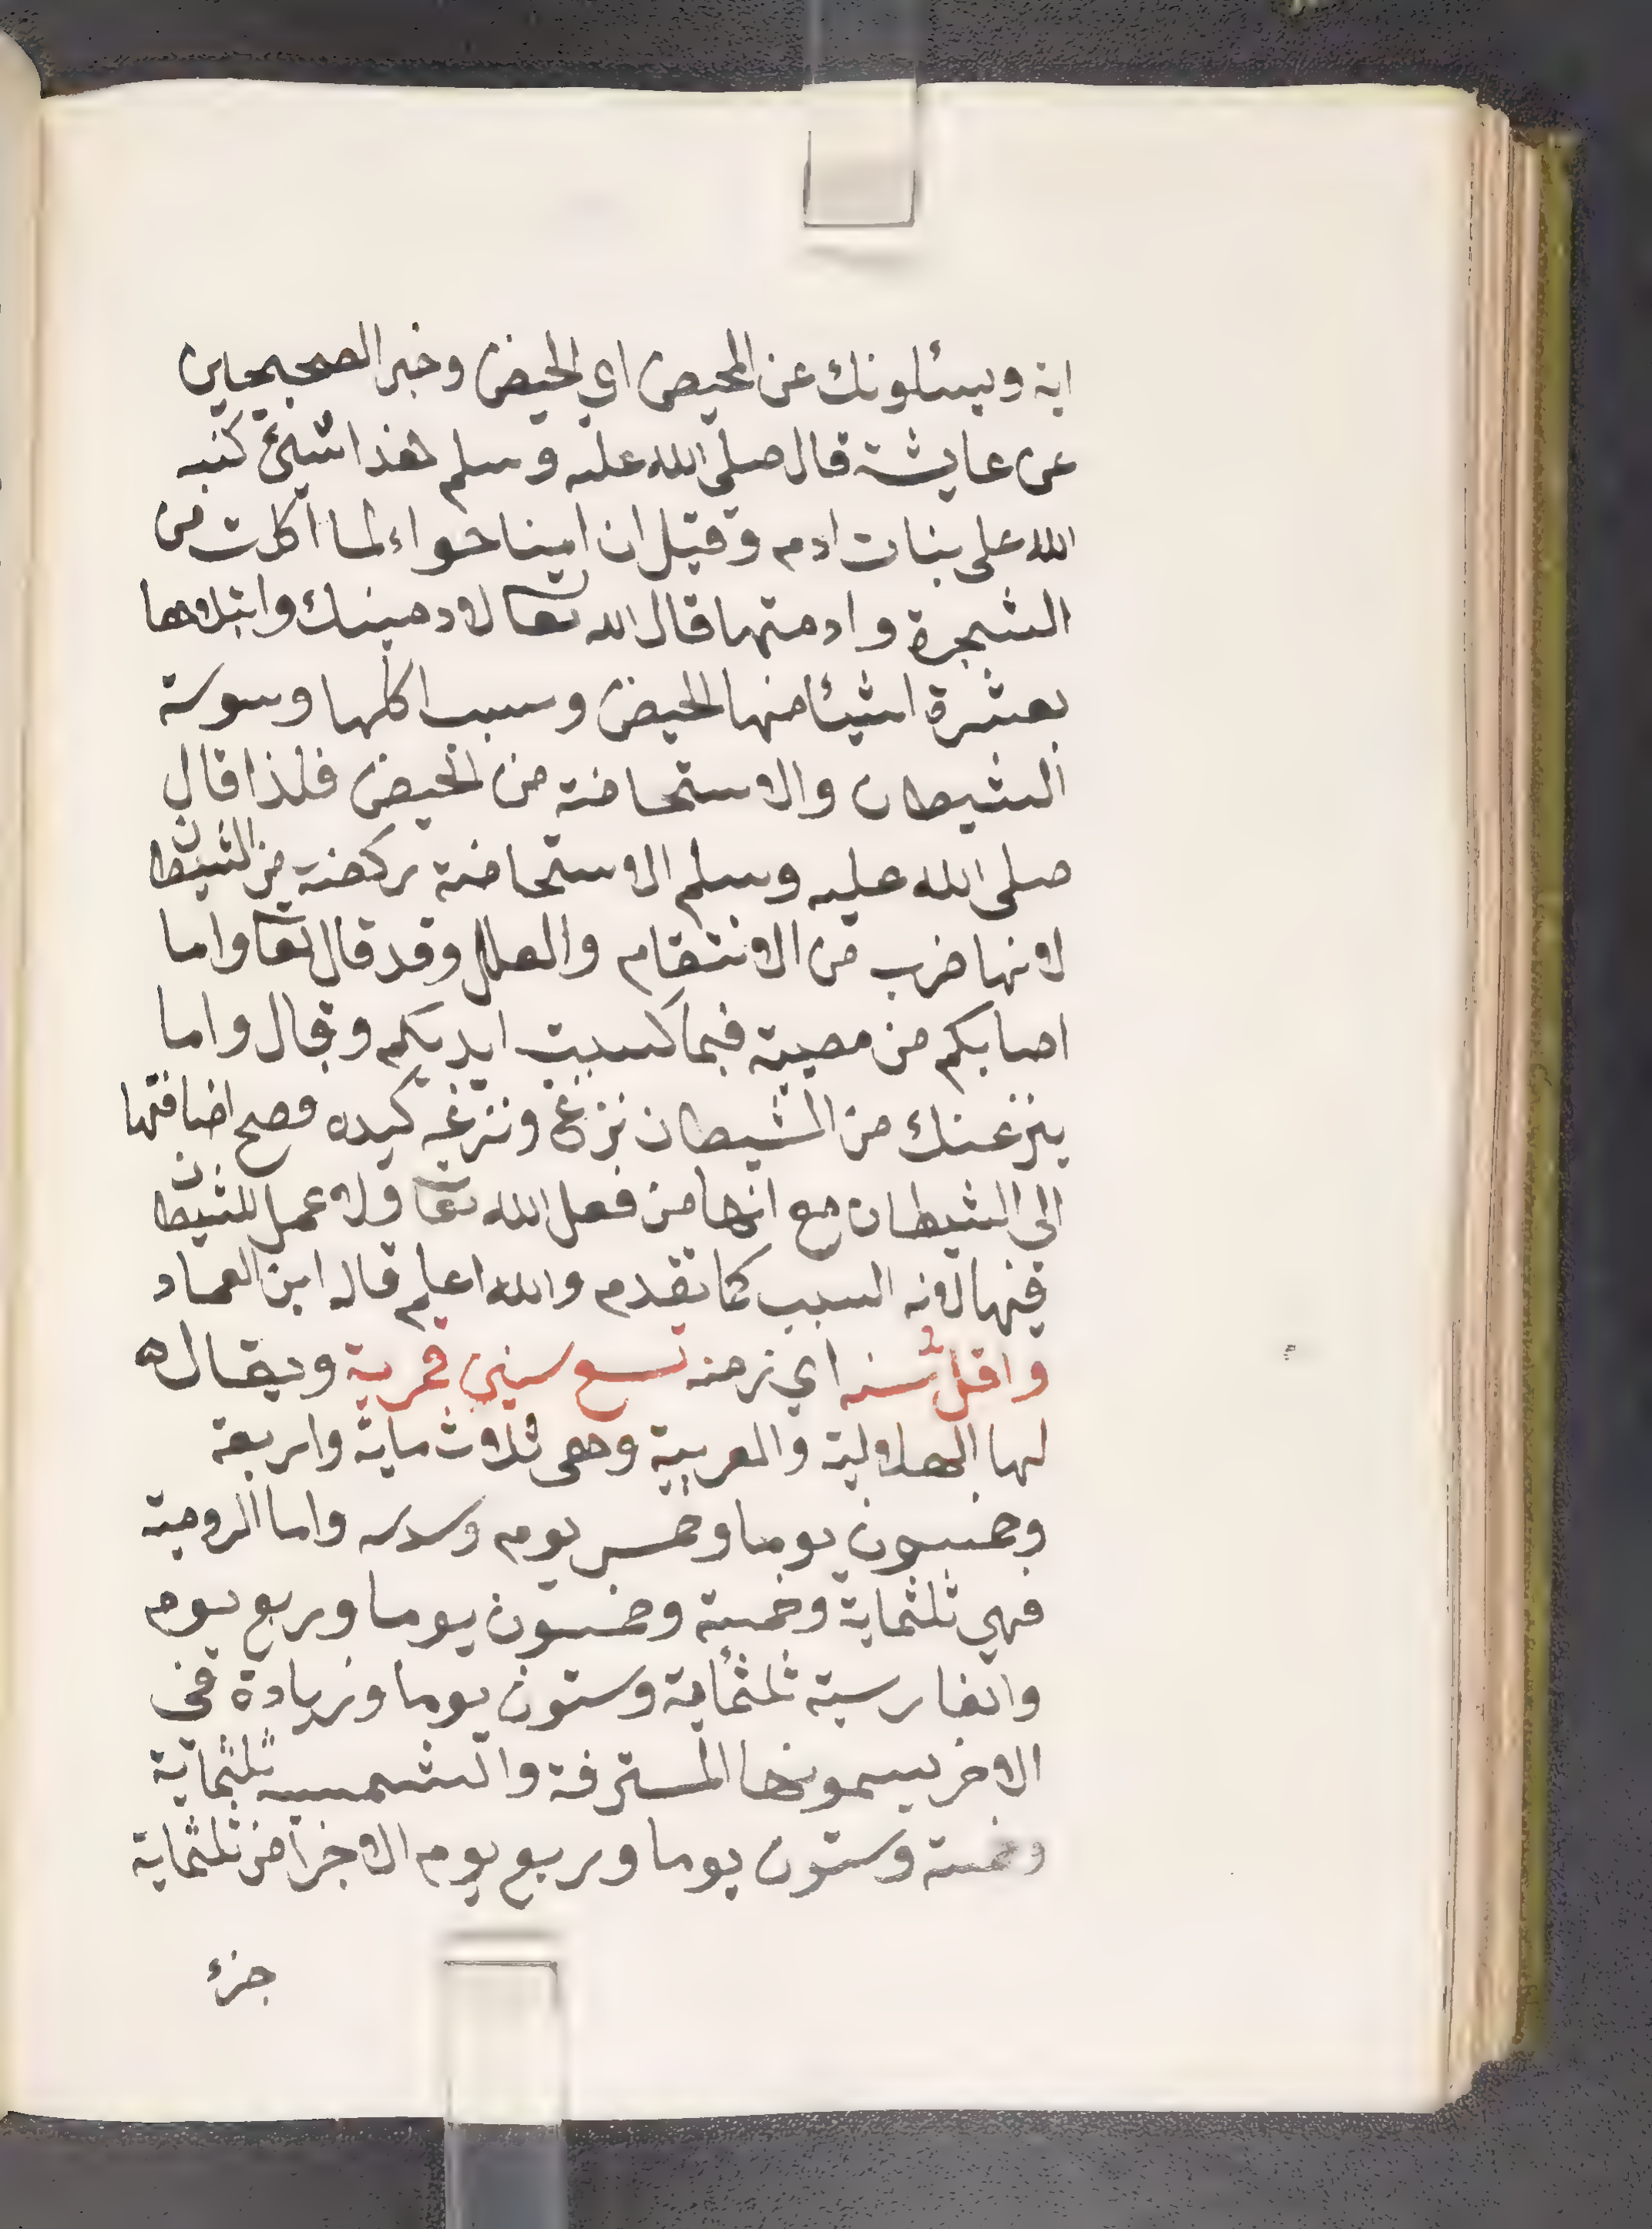 اية ويسئلونك عن المحيض اي الحيض وخبر الصحيحين
عن عايشة قال صلى الله عليه وسلم هذا شيئ كتبه
الله على بنات ادم وقيل ان امنا حواء لما اكلت من
الشجرة وادمتها قال الله تعا لادمينك وابتلاها
بعشرة اشيئا منها الحيض وسبب اكلها وسوسة
الشيطان والاستحاضة من الحيض فلذا قال
صلى الله عليه وسلم الاستحاضة ركضة من الشيطان
لانها ضرب من الانتقام والعلل وقد قال تعا واما
اصابكم من مصيبة فبما كسبت ايديكم وقال واما
ينزغنك من الشيطان نزغ ونزغه كيده وصح اضافتها
الى الشيطان مع انها من فعل الله تعا ولا عمل للشيطان
فيها لانه السبب كما تقدم والله اعلم قاله ابن العماد
واقل سنه اي زمنه تسع سنين قمرية ويقال ه
لها الهلالية والعربية وهى ثلاث ماية واربعة
وخمسون يوما وخمس يوم وسدسه واما الرومية
فهي ثلثماية وخمسة وخمسون يوما وربع يوم
والفارسية ثلثماية وستون يوما وزيادة في
الاخر يسمونها المسترقة والشمسيه ثلثماية
وخمسة وستون يوما وربع يوم الا جزأ من ثلثماية
جزء